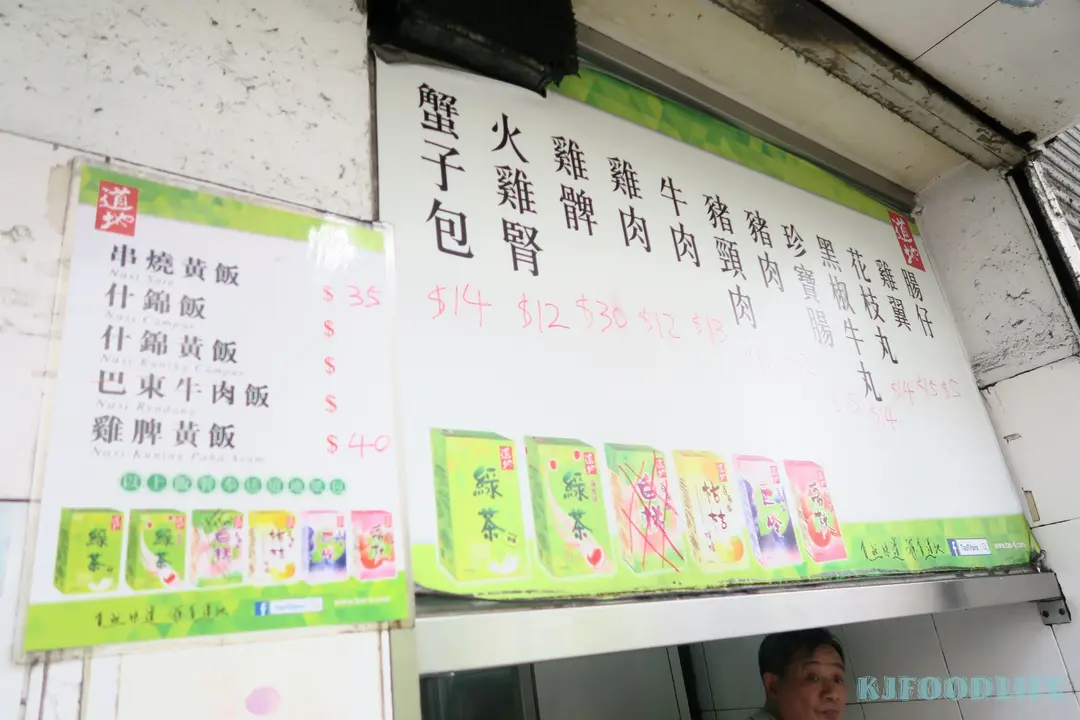 道地
串燒黃飯
Nasi Sate
$ 35
什錦飯
Nasi Campur
$
什錦黃飯
Nasi Kuning Campur
$
巴東牛肉飯
Nasi Rendang
$
雞脾黃飯
Nasi Kuning Paha Ayam
$ 40
道地
綠茶
道地
綠茶
蟹子包
$14
火雞腎
$12
雞髀
$30
雞肉
$12
牛肉
$13
豬頸肉
豬肉
珍寶腸
黑椒牛丸
花枝丸
雞翼
腸仔
$14
$14
$15
道地
道地
綠茶
道地
綠茶
KJFOODLIFE